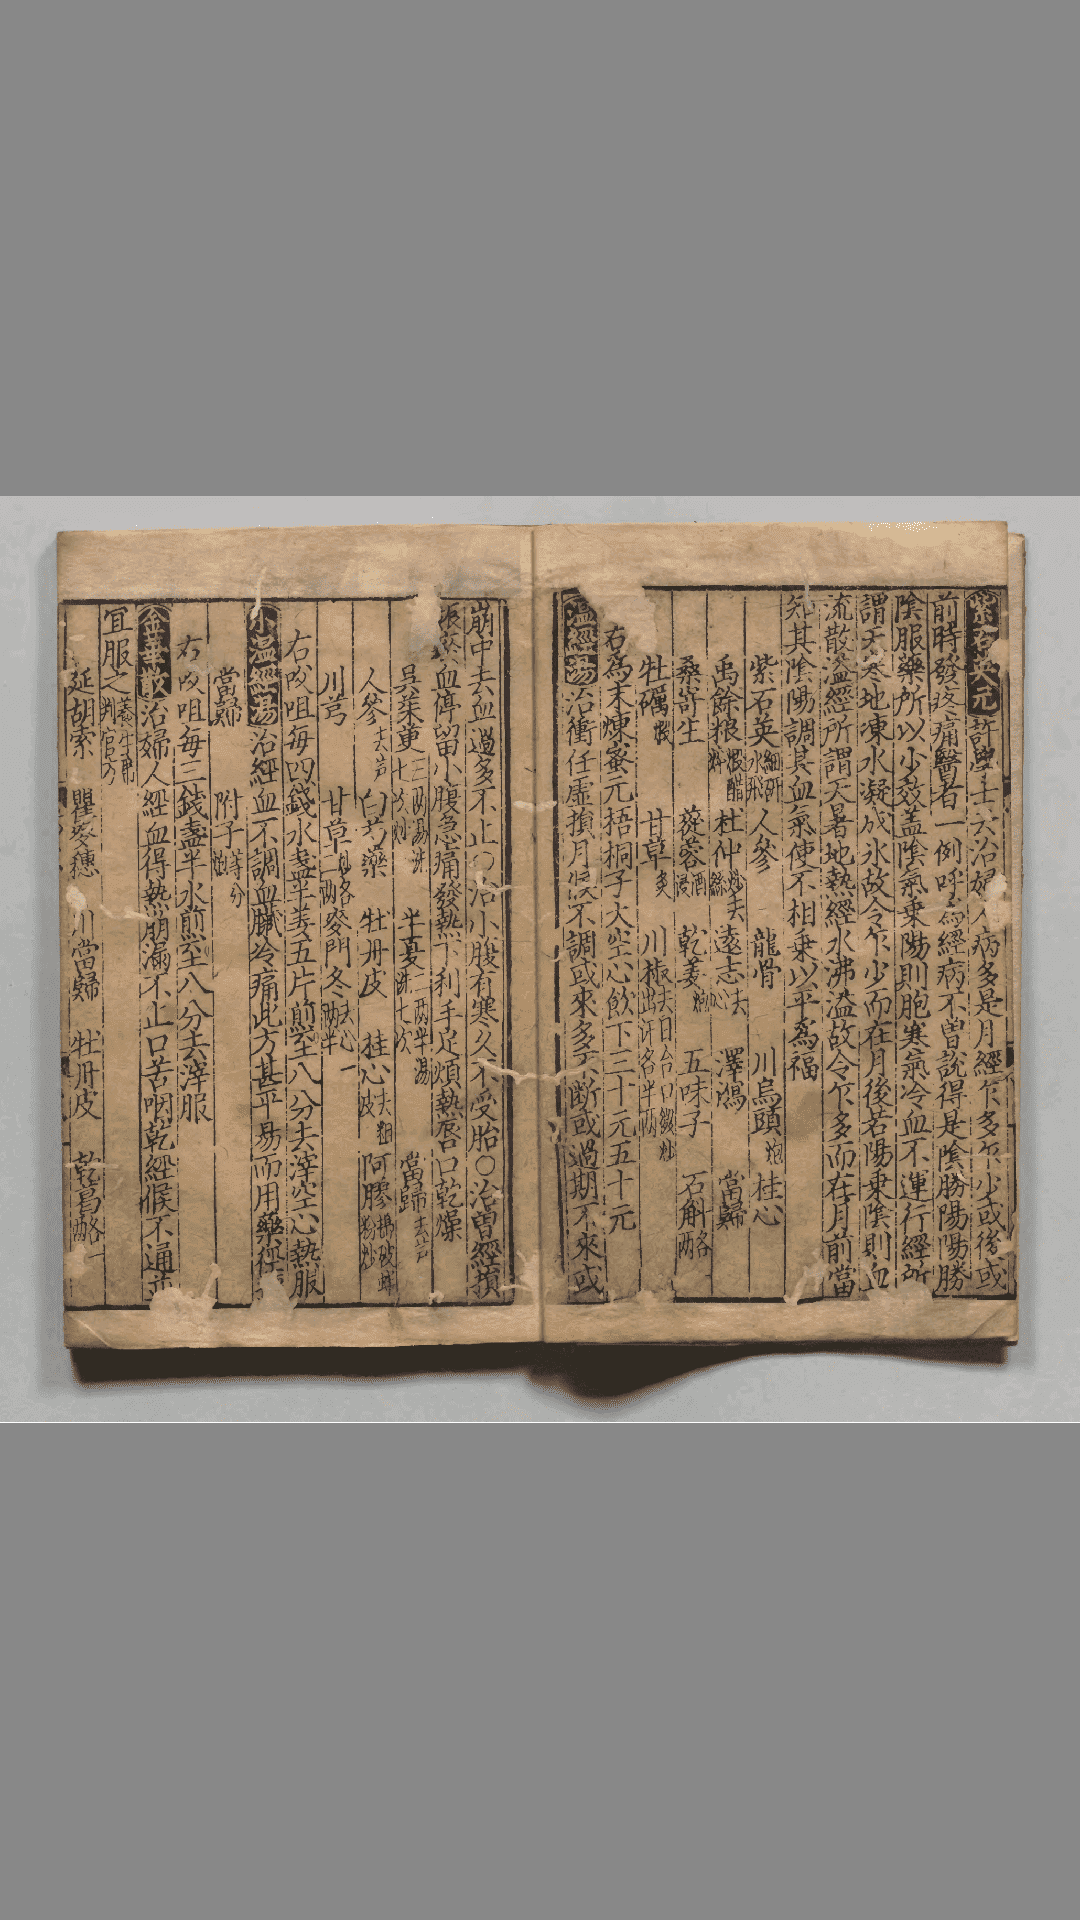 紫石英元許學士云治婦人病多是月經乍多乍少或後或
前時發疼痛醫者一例呼為經病不曽說得是陰勝陽陽勝
陰服藥所以少效蓋陰氣乗陽則胞寒氣冷血不運行經所
謂天寒地凍水凝成氷故令乍少而在月後若陽乗陰則血
流散溢經所謂天暑地熱經水沸溢故令乍多而在月前當
知其陰陽調其血氣使不相乗以平為福
紫石英細研水飛 人參 龍骨 川烏頭炮 桂心
禹餘粮煅醋淬 杜仲炒去絲 遠志去心 澤瀉 當歸
桑寄生 蓯蓉酒浸 乾姜炮 五味子 石斛各兩
牡礪煅 甘草炙 川椒去目合口微炒出汗各半兩
右為末煉蜜元梧桐子大空心飲下三十元五十元
温經湯治衝任虛損月候不調或來多不断或過期不來或
崩中去血過多不止○治小腹有寒久不受胎○治曽經損
娠瘀血停留小腹急痛發熱下利手足煩熱唇口乾燥
吳茱萸三兩湯洗七次炒 半夏二兩半湯洗七次 當歸去芦
人參去芦 白芍藥 牡丹皮 桂心去粗皮 阿膠搗破蛤粉炒
川芎 甘草已各二兩 麥門冬去心一兩半
右㕮咀每四錢水盞半姜五片煎至八分去滓空心熱服
小温經湯治經血不調血臟冷痛此方甚平易而用藥徑
當歸 附子等分炮
右㕮咀每三錢盞半水煎至八分去滓服
金華散治婦人經血得熱崩漏不止口苦咽乾經候不通並
宜服之養生甫判官方
延胡索 瞿麥穗 川當歸 牡丹皮 乾葛各一兩